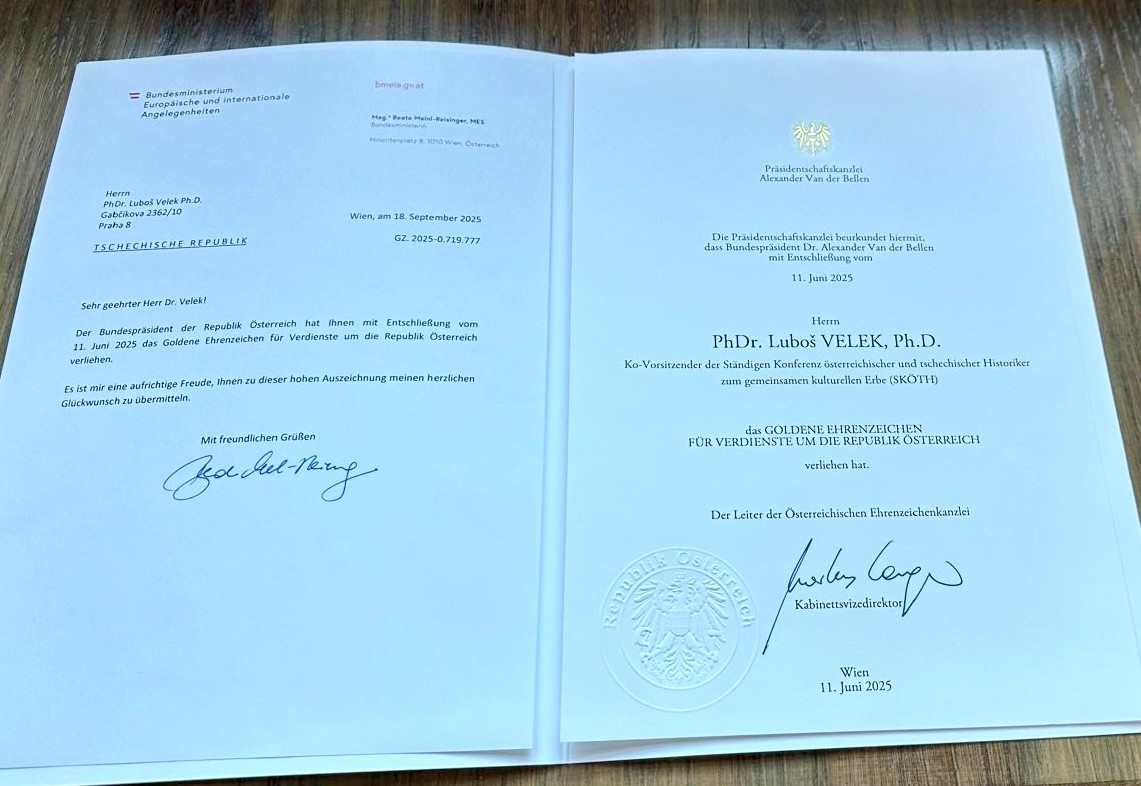 Bundesministerium
Europäische und internationale
Angelegenheiten
bmeia.gv.at
Mag.ᵃ Beate Meinl-Reisinger, MES
Bundesministerin
Minoritenplatz 8, 1010 Wien, Österreich
Herrn
PhDr. Luboš Velek Ph.D.
Gabčíkova 2362/10
Praha 8
TSCHECHISCHE REPUBLIK
Wien, am 18. September 2025
GZ. 2025-0.719.777
Sehr geehrter Herr Dr. Velek!
Der Bundespräsident der Republik Österreich hat Ihnen mit Entschließung vom
11. Juni 2025 das Goldene Ehrenzeichen für Verdienste um die Republik Österreich
verliehen.
Es ist mir eine aufrichtige Freude, Ihnen zu dieser hohen Auszeichnung meinen herzlichen
Glückwunsch zu übermitteln.
Mit freundlichen Grüßen
Präsidentschaftskanzlei
Alexander Van der Bellen
Die Präsidentschaftskanzlei beurkundet hiermit,
dass Bundespräsident Dr. Alexander Van der Bellen
mit Entschließung vom
11. Juni 2025
Herrn
PhDr. Luboš VELEK, Ph.D.
Ko-Vorsitzender der Ständigen Konferenz österreichischer und tschechischer Historiker
zum gemeinsamen kulturellen Erbe (SKÖTH)
das GOLDENE EHRENZEICHEN
FÜR VERDIENSTE UM DIE REPUBLIK ÖSTERREICH
verliehen hat.
Der Leiter der Österreichischen Ehrenzeichenkanzlei
Kabinettsvizedirektor
Republik Österreich
Wien
11. Juni 2025